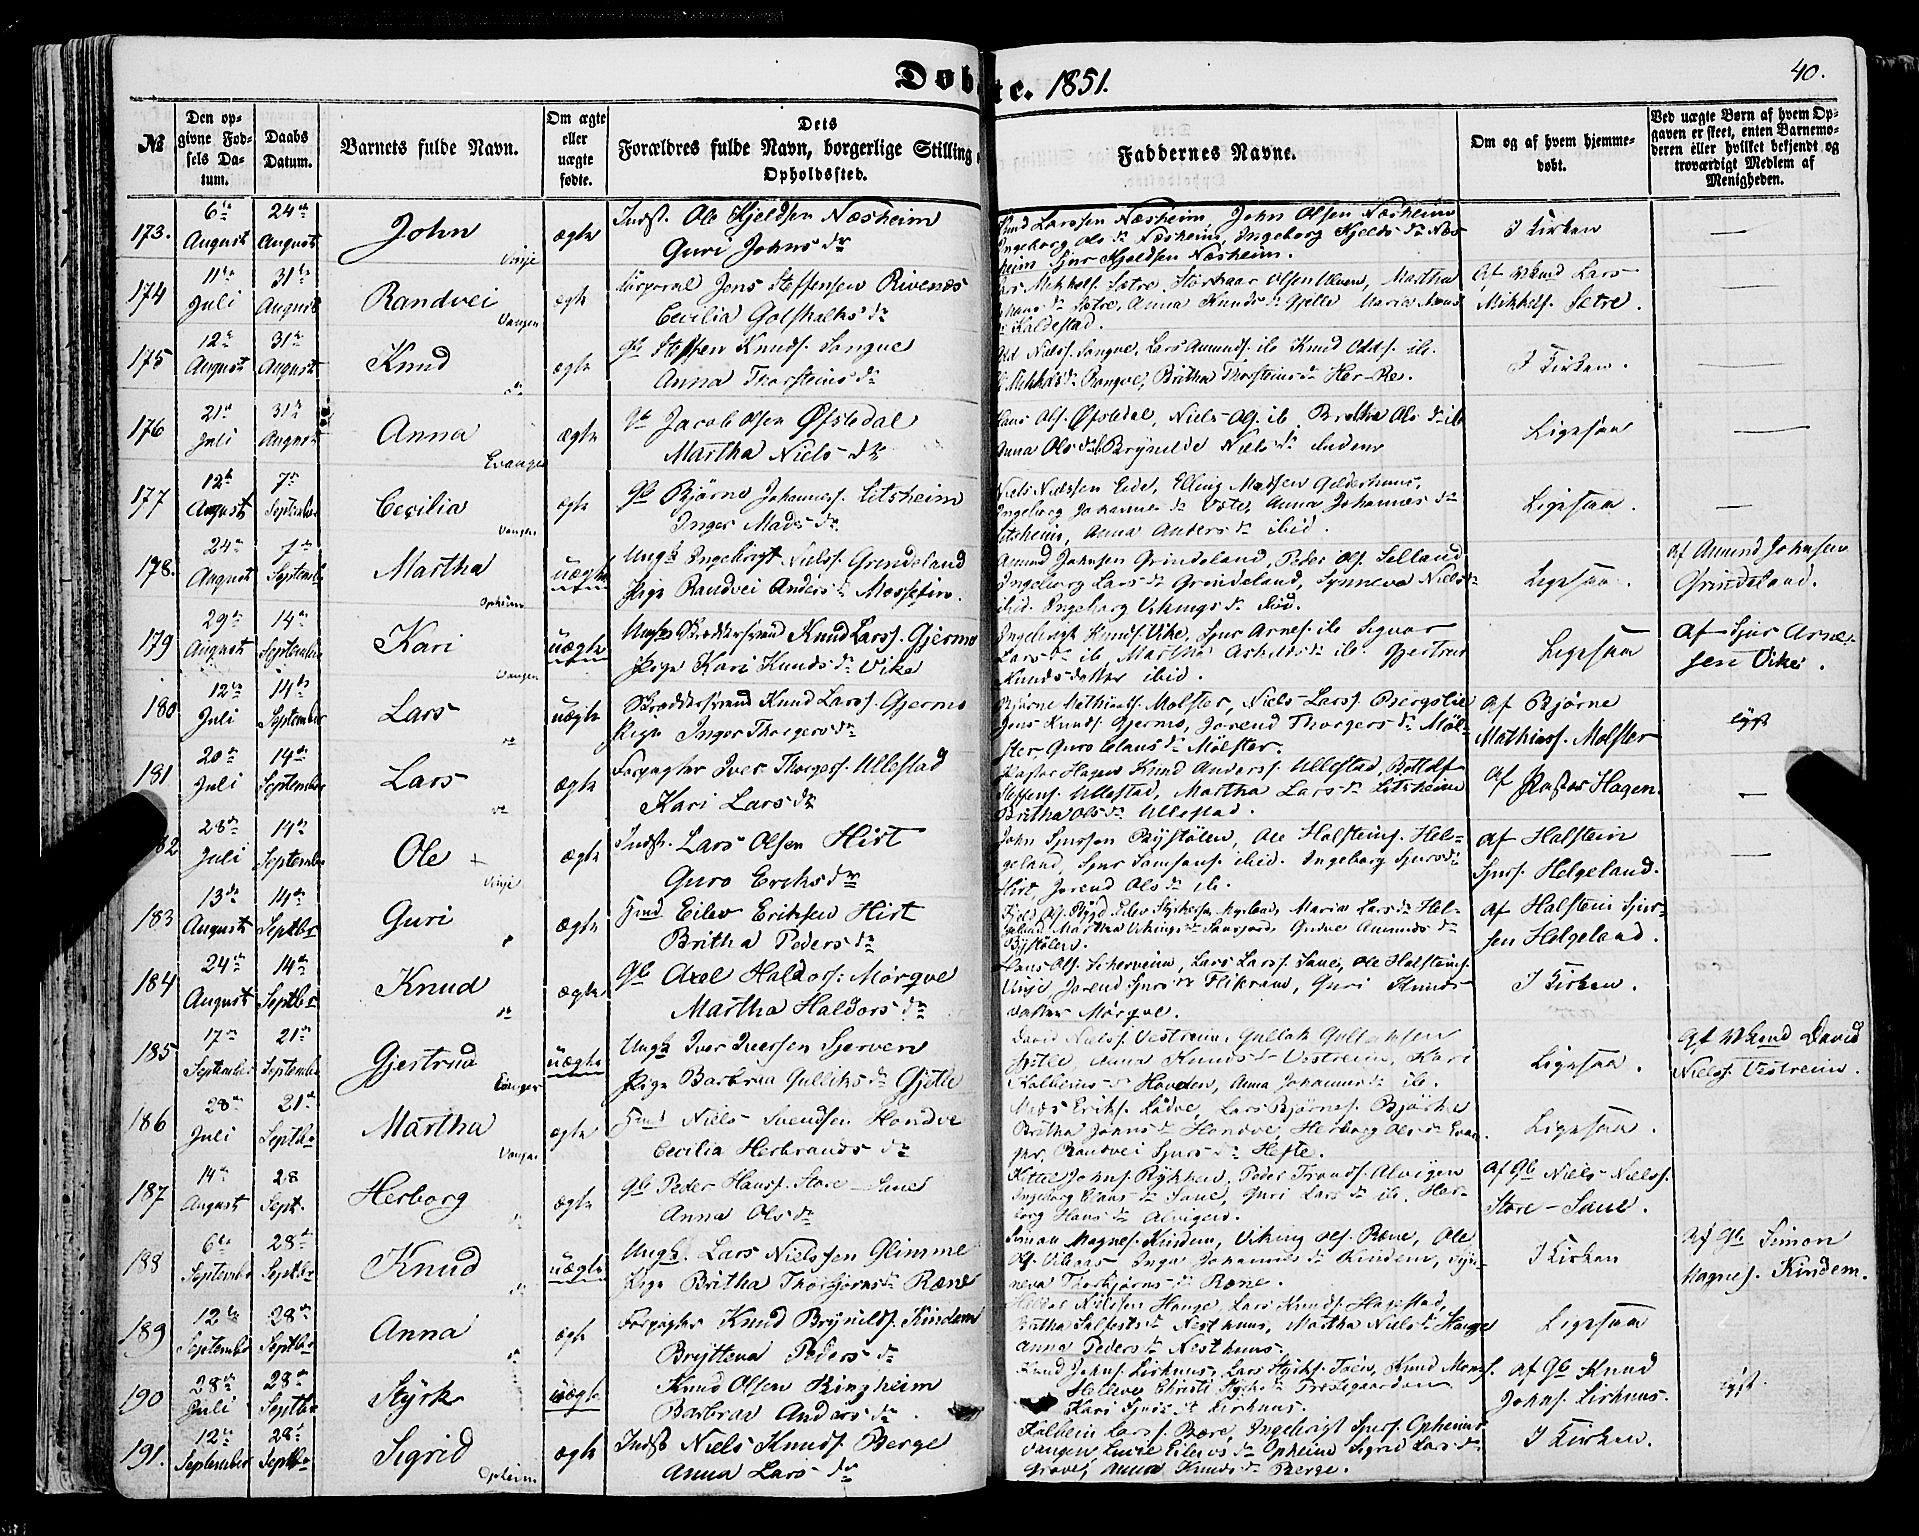 Døbte. 1851.
40.
№
Den opgivne Fødsels Datum.
Daabs Datum.
Barnets fulde Navn.
Om ægte eller uægte fødte.
Dets Forældres fulde Navn, borgerlige Stilling
Opholdssted.
Faddernes Navne.
Om og af hvem hjemmedøbt.
Ved uægte Børn af hvem Opgaven er skeet, enten Barnemoderen eller hvilket bekjendt og troværdigt Medlem af Menigheden.
173. 6te August 24de August John Vinje ægte Indst. Ole Kjeldsen Næsheim
Guri Johnsdr
Larssen Næsheim, John Olsen Næsheim
Ingeborg Olsdr Næsheim, Ingeborg Kjeldsdr Næs
heim Sjur Kjeldsen Næsheim.
I Kirken —
174 11te Juli 31te August Randvei Vangen ægte Korporal Jens Steffensen Rivenæs
Cecilia Golsthalksdr
Mikkels. Sætre, Storkaar Olsen Ulven, Martha
Sætre, Anna Knudsdr Gjelle Maria Mons
Kaldestad.
Af Gbmd Lars
Mikkels. Setre. —
175 12te August 31te August Knud do ægte Gb Steffen Knuds. Sangve
Anna Thorsteinsdr
Niels. Sangve, Lars Amunds. ib Knud Odds. ib.
Rongve, Britha Thorsteinsdr Her-Re.
I Kirken. —
176 21de Juli 31te August Anna Evanger ægte Gb Jacob Olsen Øfstedal
Martha Nielsdr
Hans Ols. Øfstedal, Niels Ols. ib Britha Olsdr ib
Anna Olsdr Brynilde Nielsdr
Ligesaa —
177 12te August 7de September Cecilia Vangen ægte Gb Bjørne Johanness. Litsheim
Inger Madsdr
Niels Nielssen Eide, Elling Madsen Gjelderhuus,
Ingeborg Johannesdr Væte, Anna Johannesdr
Litsheim, Anna Andersdr ibid.
Ligesaa. —
178. 24de August 7de September Martha Opheim uægte Ungk Ingebrigt Niels. Grindeland
Pige Randvei Andersdr Mossefin.
Amund Johnsen Grindeland, Peder Ols. Selland
Ingeborg Larsdr Grindeland, Synneva Nielsdr
ibid. Ingeborg Vikingsdr ibid.
Ligesaa.
af Amund Johnsen
Grindeland.
179 29de August 14de September Kari Vangen uægte Ungk Skræddersvend Knud Larss. Gjermo
Pige Kari Knudsdr Vike
Ingebrigt Knuds. Vike, Sjur Arnes. ib Sigvor
Larsdr ib, Martha ib. Gjertrud
Knudsdatter ibid.
Ligesaa
Af Sjur Arne-
sen Vike.
180 12te Juli 14de September Lars do uægte Skræddersvend Knud Larss. Gjermo
Pige Inger Thorgersdr
Bjørne Mathiass. Molster, Niels Larss. Børgslie
Jens Knuds. Gjermo, Jorend Thorgersdr Møl-
ster, Guro Mølster.
af Bjørne
Mathiass. Mølster
lyst
181 20de Juli 14de September Lars do ægte Forpagter Iver Thorgers. Ullestad
Kari Larsdr
Pastor Hagen Knud Anderss. Ullestad, Botolf
Steffens. Ullestad, Martha Larsdr Litsheim
Britha Olsdr Ullestad.
af Pastor Hagen. —
182 28de Juli 14de September Ole + Vinje ægte Indst. Lars Olsen Hirt
Guro Eriksdr
John Sjurssen Bystølen, Ole Halsteins. Hel-
geland, Sjur Samsons. ibid. Ingeborg Sjursdr
Hirt, Jorend Olsdr ib.
af Halstein
Sjurs. Helgeland. —
183 13de August 14de Septbr Guri ægte Hmd Eilev Eriksen Hirt
Britha Pedersdr
Maria Larsdr Hel-
geland Martha Vikingsdr Gudve Amundsdr
Bystølen.
af Halstein Sjur-
sen Helgeland.
184 24de August 14de Septbr Knud do ægte Gb Axel Haldors. Mørqve
Martha Haldorsdr
Lars Larss. Saue, Ole Halsteins.
Vinje Jorend Sjursdr Flikraae, Guri Knuds-
datter Mørqve.
I Kirken.
185 17de September 21de September Gjertrud Evanger uægte Ungk Iver Iversen Sjerven
Pige Barbraa Gulliksdr Gjelle
David Niels. Vestreim, Gullak Gullaksen
Gjelle, Anna Knudsdr Vestreim, Kari
Kolbeinsdr Hovden, Anna Johannesdr ib.
Ligesaa.
Af Gbmd David
Niels. Vestreim.
186 28de Juli 21de Septbr Martha Vangen ægte Hmd Niels Svendsen Hondve
Cecilia Herbrandsdr
Mads Eriks. Lødve, Lars Bjørnes. Bjørke
Britha Johnsdr Hondve, Herborg Olsdr Evan-
ger, Randvei Sjursdr Hefte.
Ligesaa.
187 14de August 28 Sept. Herborg do ægte Gb Peder Hans. Store-Saue
Anna Olsdr
Johns. Rykken, Peder Tronds. Alvigen
Ingeborg Saue, Guri Larsdr ib. Her-
borg Hansdr Alvigen.
af Gb Niels Niels.
Store-Saue.
188 6te September 28de Septbr Knud do uægte Ungk. Lars Nielssen Glimme
Pige Britha Thorbjørnsdr Ræne
Simon Magnes. Kindem, Viking Ols. Ræne, Ole
Inga Johannesdr Kindem, Syn-
neva Thorbjørnsdr Ræne.
I Kirken
Af Gb Simon
Magnes. Kindem.
189 12te September 28de Septbr Anna do ægte Forpagter Knud Brynilds. Kindem
Bryttena Pedersdr
Haldor Nielssen Hauge, Lars Knuds. Hagestad,
Britha Nesthuus, Martha Nielsdr Hauge
Anna Pedersdr Nesthuus.
Ligesaa
190 28de Juli 28de Septbr Styrk uægte Knud Olsen Ringheim
Barbraa Andersdr.
Knud Johns. Lirhuus, Lars Styrks. Tøen, Knud Mons.
Helleve Christi Styrksdr Prestegaarden
Kari Sjursdr Lirhuus.
af Gb Knud
Johns. Lirhuus.
lyst.
191. 12te September 28de Septbr Sigrid Opheim ægte Indst Niels Knuds. Berge
Anna Larsdr
Kolbein Larss. Bære, Ingebrigt Sjurs. Opheims
vangen, Eilevsdr Opheim Sigrid Larsdr
Grove, Anna Knudsdr Berge.
I Kirken.